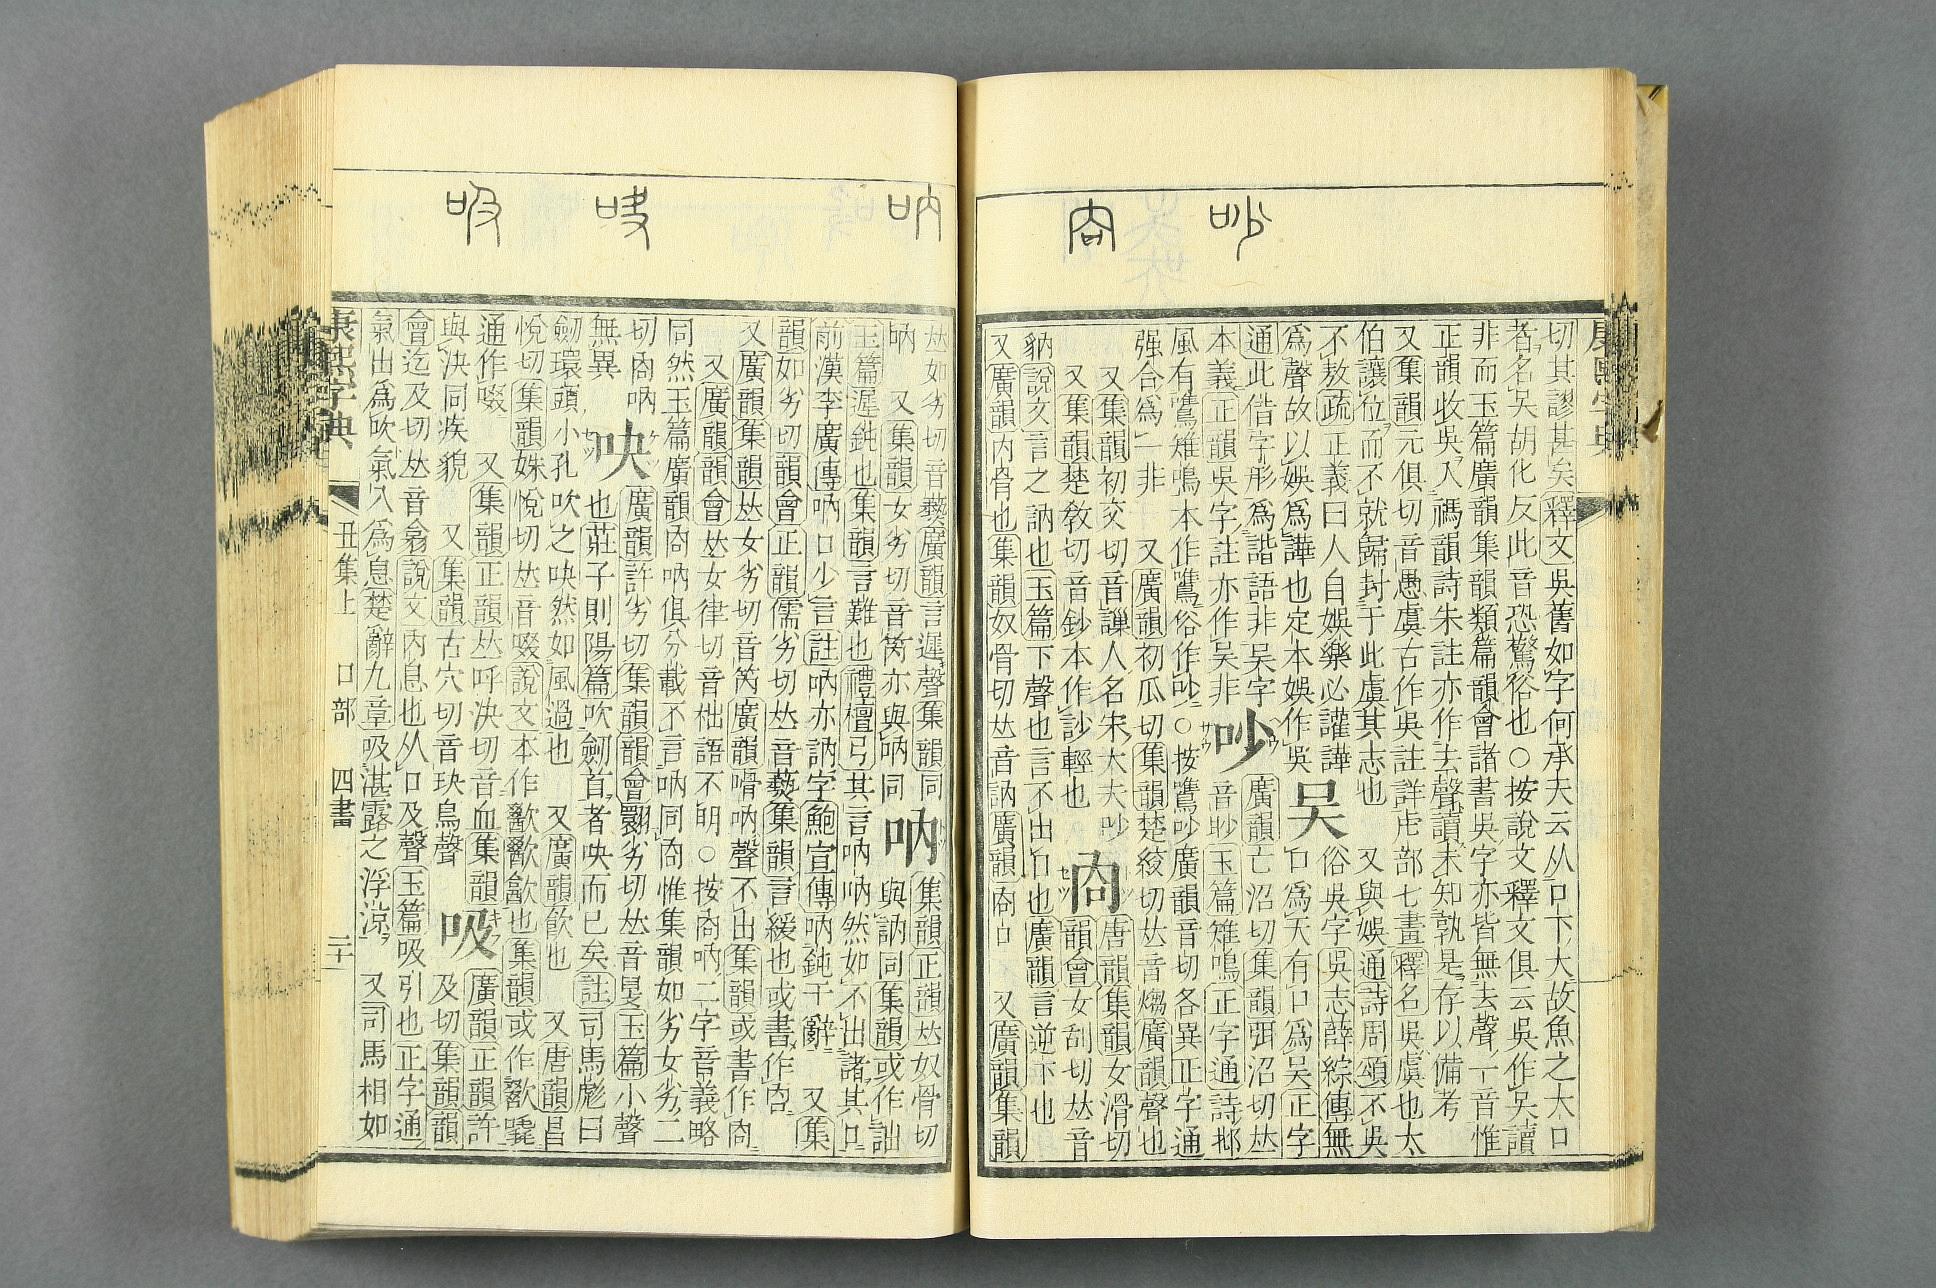 吵
㕯
切其謬甚矣釋文吳舊如字何承天云从口下大故魚之大口
者名吳胡化反此音恐驚俗也○按說文釋文俱云吳作吳讀
非而玉篇廣韻集韻類篇韻會諸書吳字亦皆無去聲一音惟
正韻收吳入禡韻詩朱註亦作去聲讀未知孰是存以備考
又集韻元俱切音愚虞古作吳註詳虍部七畫釋名吳虞也太
伯讓位而不就歸封于此虞其志也 又與娛通詩周頌不吳
不敖疏正義曰人自娛樂必讙譁 吴 俗吳字吳志薛綜傳無
爲聲故以娛爲譁也定本娛作吳 口爲天有口爲吴正字
通此借字形爲諧語非吴字 吵 廣韻亡沼切集韻弭沼切𠀤
本義正韻吳字註亦作吴非 音眇玉篇雉鳴正字通詩邶
風有鷕雉鳴本作鷕俗作吵○按鷕吵廣韻音切各異正字通
强合爲一非 又廣韻初瓜切集韻楚絞切𠀤音煼廣韻聲也
又集韻初交切音謙人名宋大夫吵 㕯 唐韻集韻女滑切
又集韻楚敎切音鈔本作訬輕也 韻會女刮切𠀤音
豽說文言之訥也玉篇下聲也言不出口也廣韻言逆下也
又廣韻內骨也集韻奴骨切𠀤音訥廣韻㕯口 又廣韻集韻
呐
吷
吸
𠀤如劣切音爇廣韻言遲聲集韻同 呐 集韻正韻𠀤奴骨切
呐 又集韻女劣切音笍亦與呐同 與訥同集韻或作詘
玉篇遲鈍也集韻言難也禮檀弓其言呐呐然如不出諸其口
前漢李廣傳呐口少言註呐亦訥字鮑宣傳呐鈍于辭 又集
韻如劣切韻會正韻儒劣切𠀤音爇集韻言緩也或書作㕯
又廣韻集韻𠀤女劣切音笍廣韻嗗呐聲不出集韻或書作㕯
又廣韻韻會𠀤女律切音柮語不明○按㕯呐二字音義略
同然玉篇廣韻㕯呐俱分載不言呐同㕯惟集韻如劣女劣二
切㕯呐 吷 廣韻許劣切集韻韻會翾劣切𠀤音㫕玉篇小聲
無異 也莊子則陽篇吹劒首者吷而已矣註司馬彪曰
劒環頭小孔吹之吷然如風過也 又廣韻飮也 又唐韻昌
悅切集韻姝悅切𠀤音啜說文本作歠歠㱃也集韻或作㱃嚽
通作啜 又集韻正韻𠀤呼決切音血集韻 吸 廣韻正韻許
與決同疾貌 又集韻古穴切音玦鳥聲 及切集韻韻
會迄及切𠀤音翕說文內息也从口及聲玉篇吸引也正字通
氣出爲欨氣入爲息楚辭九章吸湛露之浮涼 又司馬相如
康熙字典 丑集上 口部 四畫 二十